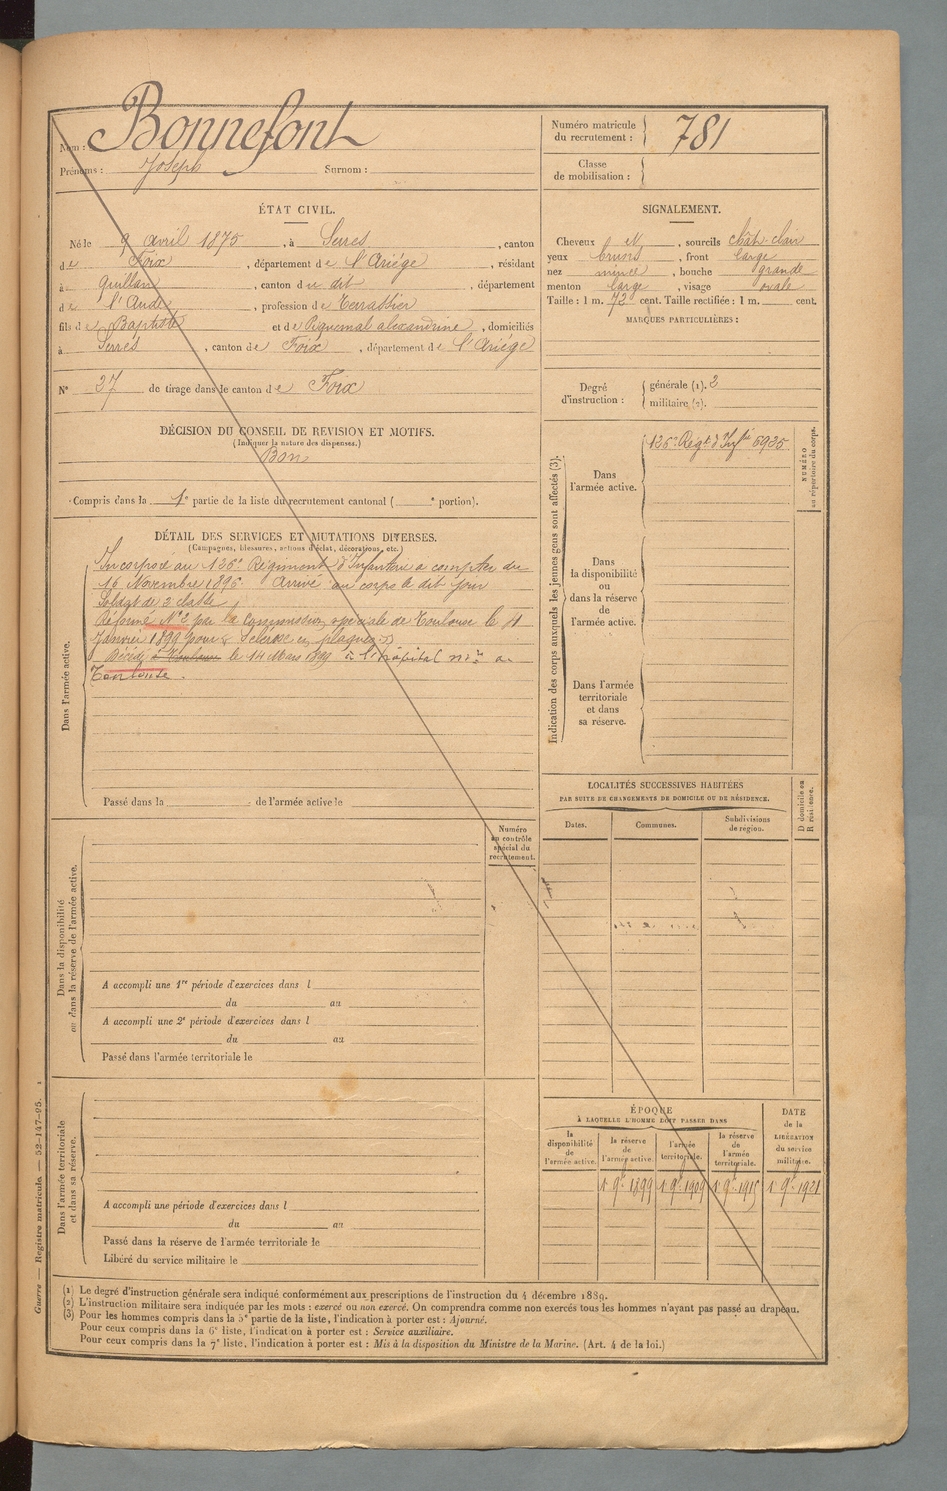 Nom : Bonnefont
Prénoms : Joseph Surnom :
Numéro matricule du recrutement : 781
Classe de mobilisation :
ÉTAT CIVIL.
Né le 9 avril 1875, à Serres, canton
de Foix, département de l'Ariége, résidant
à Quillan, canton du dit, département
de l'Aude, profession de Terrassier
fils de Baptiste et de Piquemal alexandrine, domiciliés
à Serres, canton de Foix, département de l'Ariége
N° 37 de tirage dans le canton de Foix
DÉCISION DU CONSEIL DE REVISION ET MOTIFS.
(Indiquer la nature des dispenses.)
Bon
Compris dans la 1e partie de la liste du recrutement cantonal ( e portion).
SIGNALEMENT.
Cheveux et, sourcils chât-clair
yeux bruns, front large
nez mince, bouche grande
menton large, visage ovale
Taille : 1 m. 72 cent. Taille rectifiée : 1 m. cent.
MARQUES PARTICULIÈRES :
Degré d'instruction :
générale (1). 2
militaire (2).
DÉTAIL DES SERVICES ET MUTATIONS DIVERSES.
(Campagnes, blessures, actions d'éclat, décorations, etc.)
Dans l'armée active.
Incorporé au 126e Régiment d'Infanterie a compter du
16 Novembre 1896. Arrivé au corps le dit jour
Soldat de 2e classe
Réformé N° 2 par la Commission spéciale de Toulouse le 11
Janvier 1899 pour « Sclérose en plaques »
Décédé à Toulouse le 14 Mars 1899 à l'hôpital mre de
Toulouse.
Passé dans la de l'armée active le
Indication des corps auxquels les jeunes gens sont affectés (3).
Dans l'armée active.
126e Régt d'Infie 6925
NUMÉRO au répertoire du corps.
Dans la disponibilité ou dans la réserve de l'armée active.
Dans l'armée territoriale et dans sa réserve.
LOCALITÉS SUCCESSIVES HABITÉES
PAR SUITE DE CHANGEMENTS DE DOMICILE OU DE RÉSIDENCE.
Dates.
Communes.
Subdivisions de région.
D domicile ou R résidence.
Dans la disponibilité ou dans la réserve de l'armée active.
Numéro au contrôle spécial du recrutement.
A accompli une 1re période d'exercices dans l
du au
A accompli une 2e période d'exercices dans l
du au
Passé dans l'armée territoriale le
Dans l'armée territoriale et dans sa réserve.
A accompli une période d'exercices dans l
du au
Passé dans la réserve de l'armée territoriale le
Libéré du service militaire le
ÉPOQUE
À LAQUELLE L'HOMME DOIT PASSER DANS
la disponibilité de l'armée active.
la réserve de l'armée active.
l'armée territoriale.
la réserve de l'armée territoriale.
DATE de la LIBÉRATION du service militaire.
1 9e 1899
1 9e 1909
1 9e 1915
1 9e 1921
(1) Le degré d'instruction générale sera indiqué conformément aux prescriptions de l'instruction du 4 décembre 1889.
(2) L'instruction militaire sera indiquée par les mots : exercé ou non exercé. On comprendra comme non exercés tous les hommes n'ayant pas passé au drapeau.
(3) Pour les hommes compris dans la 5e partie de la liste, l'indication à porter est : Ajourné.
Pour ceux compris dans la 6e liste, l'indication à porter est : Service auxiliaire.
Pour ceux compris dans la 7e liste, l'indication à porter est : Mis à la disposition du Ministre de la Marine. (Art. 4 de la loi.)
Guerre — Registre matricule. — 52-147-95. 1